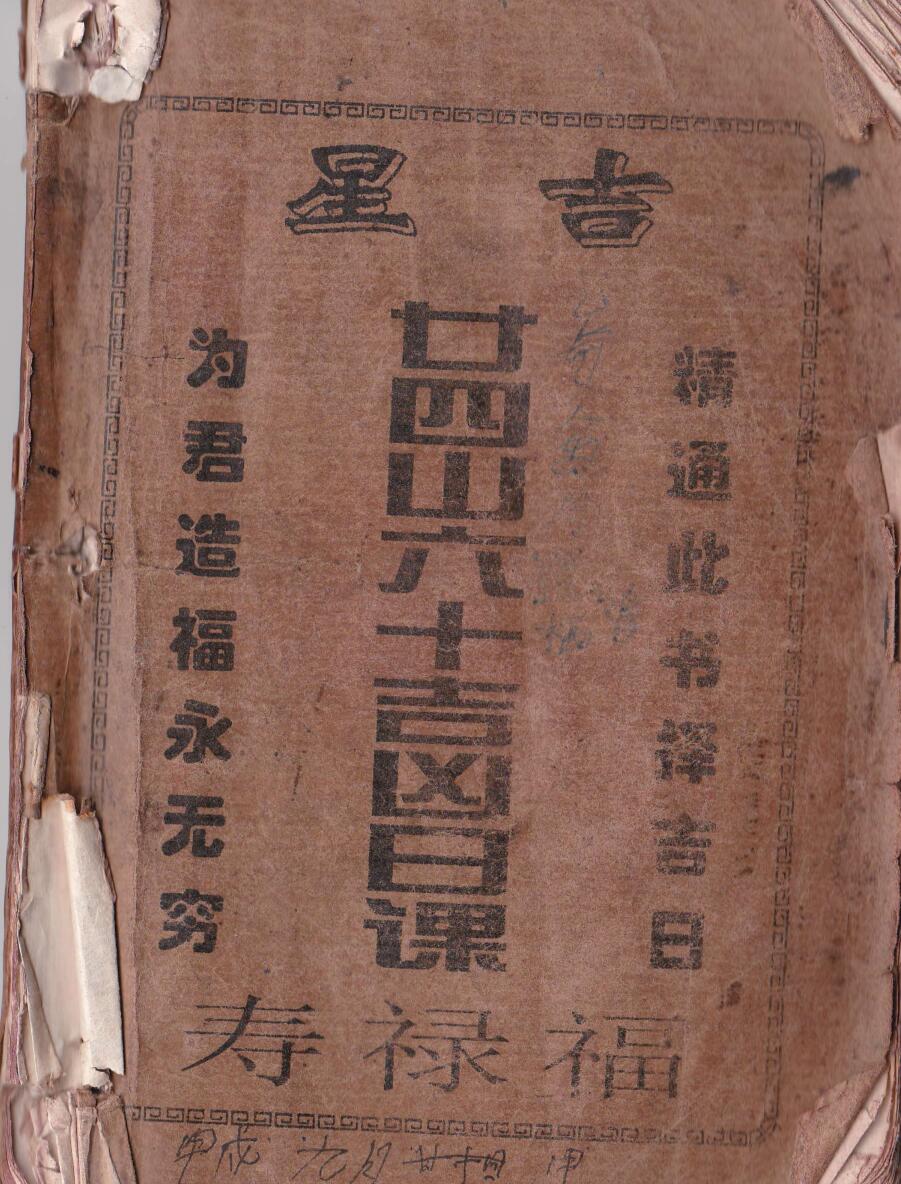 吉星
精通此书择吉日
廿四山六十吉凶日课
为君造福永无穷
福禄寿
甲戌 九月廿